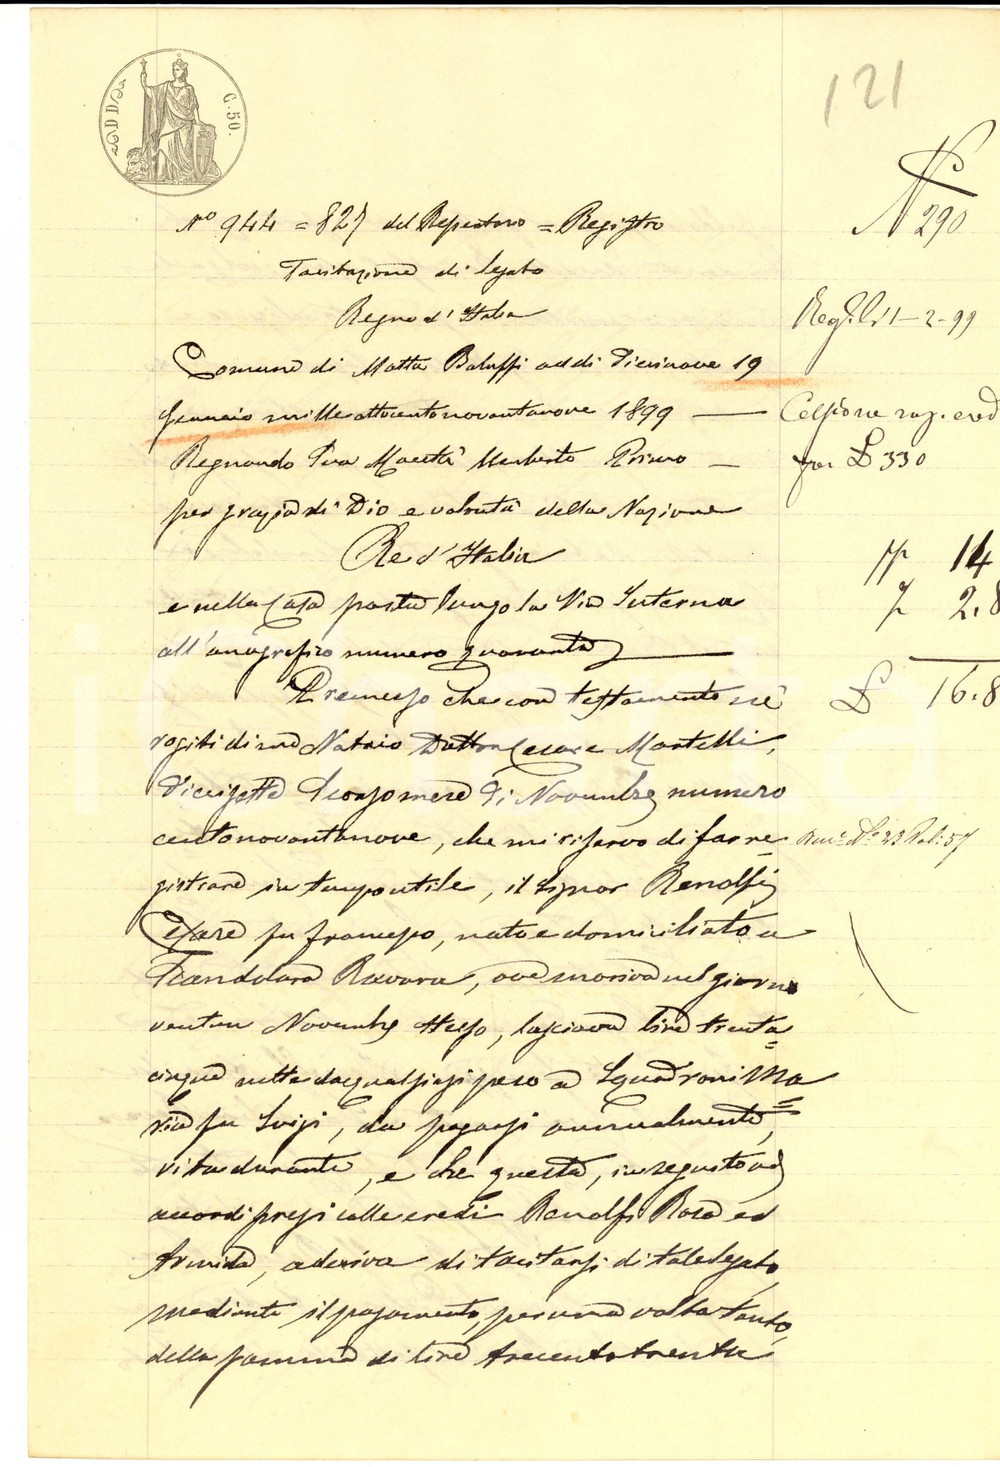 121
C. 50.
N.
290
No 944 = 827 del Repertorio = Registro
Tacitazione di legato
Regno d'Italia
Reg. li 11-2-99
Comune di Motta Baluffi addi diecinove 19
Gennaio mille ottocentonovantanove 1899 —
Cessione rag. ered
per £ 330
Regnando Sua Maestà Umberto Primo —
per grazia di Dio e volontà della Nazione
Re d'Italia
14
2.8
£ 16.8
e nella Casa posta lungo la Via Interna
all'anagrafico numero quaranta
Premesso che con testamento nei
rogiti di me Notaio Dottor Cesare Martelli,
diecisette scorso mese di Novembre numero
centonovantanove, che mi riservo di far re=
gistrare in tempo utile, il signor Renolfi
Cesare fu Francesco, nato e domiciliato a
Scandolara Ravara, ove moriva nel giorno
ventun Novembre stesso, lasciava lire trenta=
cinque nette da qualsiasi peso a Squadroni Ma=
ria fu Luigi, da pagarsi annualmente,
vita durante, e che questa, in seguito ad
accordi presi colle eredi Renolfi Rosa ed
Armida, aderiva di tacitarsi di tale legato,
mediante il pagamento, per una volta tanto,
della somma di lire trecentotrenta